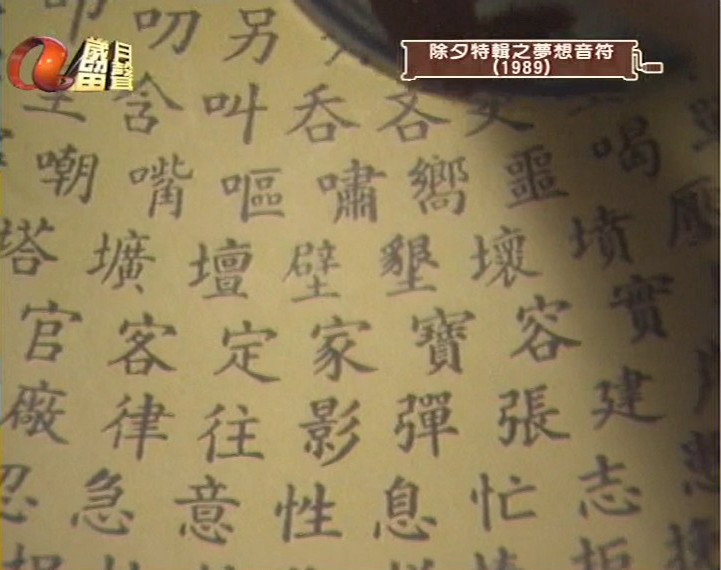 歲月留聲
除夕特輯之夢想音符
(1989)
叩叨另
含叫吞吝吏
嘲嘴嘔嘯嚮噩喝
塔壙壇壁墾壞墳壓
官客定家寶容實
廠律往影彈張建
忍急意性息忙志悲